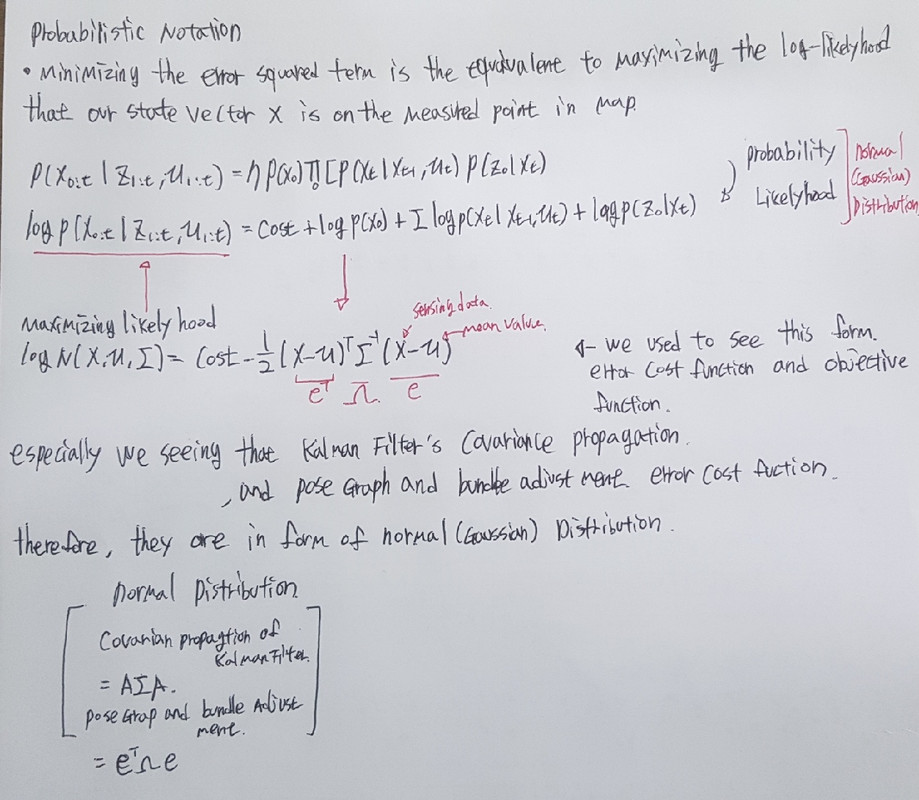 Probabilistic Notation
• Minimizing the error squared term is the equivalent to maximizing the log-likelyhood
that our state vector X is on the measured point in map.
P(X0:t | Z1:t, U1:t) = η P(X0) Π [P(Xt | Xt-1, Ut) P(Z0 | Xt)
probability
Likelyhood
normal
(Gaussian)
Distribution
log P(X0:t | Z1:t, U1:t) = Cost + log P(X0) + Σ log P(Xt | Xt-1, Ut) + log P(Z0 | Xt)
sensing data.
mean value.
Maximizing likelyhood
log N(X, U, Σ) = Cost - 1/2 (X-U)ᵀ Σ⁻¹ (X-U)
eᵀ Ω e
← we used to see this form.
error cost function and objective
function.
especially we seeing that Kalman Filter's Covariance propagation.
, and pose Graph and bundle adjustment error cost fuction.
therefore, they are in form of normal (Gaussian) Distribution.
normal Distribution
Covarian propagtion of
Kalman Filter.
= AΣA.
pose Grap and bundle Adjust
ment.
= eᵀΩe